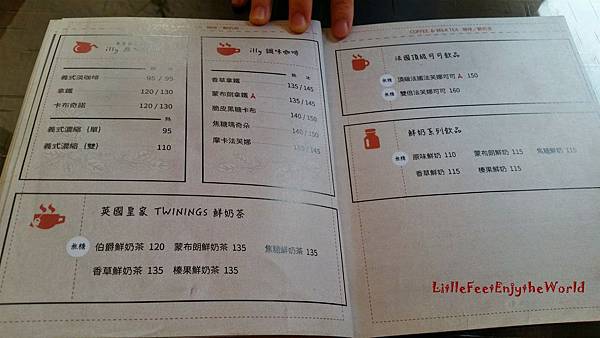 咖啡／鮮奶茶
illy
熱 冰
義式淡咖啡 95 / 95
拿鐵 120 / 130
卡布奇諾 120 / 130
熱
義式濃縮（單） 95
義式濃縮（雙） 110
illy 調味咖啡
熱 冰
香草拿鐵 135 / 145
蒙布朗拿鐵 135 / 145
脆皮黑糖卡布 140 / 150
焦糖瑪奇朵 140 / 150
摩卡法芙娜 135 / 145
英國皇家 TWININGS 鮮奶茶
無糖 伯爵鮮奶茶 120 蒙布朗鮮奶茶 135 焦糖鮮奶茶 135
香草鮮奶茶 135 榛果鮮奶茶 135
COFFEE & MILK TEA 咖啡／鮮奶茶
法國頂級可可飲品
無糖 頂級法國法芙娜可可 150
無糖 雙倍法芙娜可可 160
鮮奶系列飲品
無糖 原味鮮奶 110 蒙布朗鮮奶 115 焦糖鮮奶 115
香草鮮奶 115 榛果鮮奶 115
LittleFeetEnjytheWorld